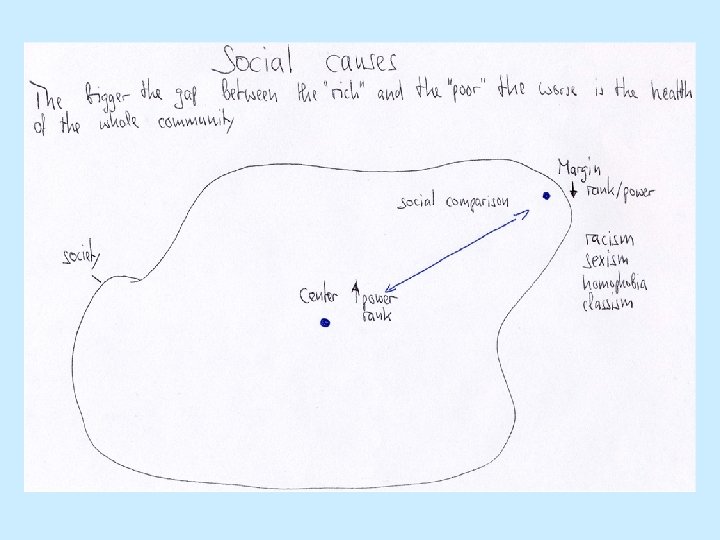 Social causes
The bigger the gap between the "rich" and the "poor" the worse is the health
of the whole community
Margin
↓ rank/power
social comparison
racism
society
sexism
homophobia
Center ↑ power
classism
rank